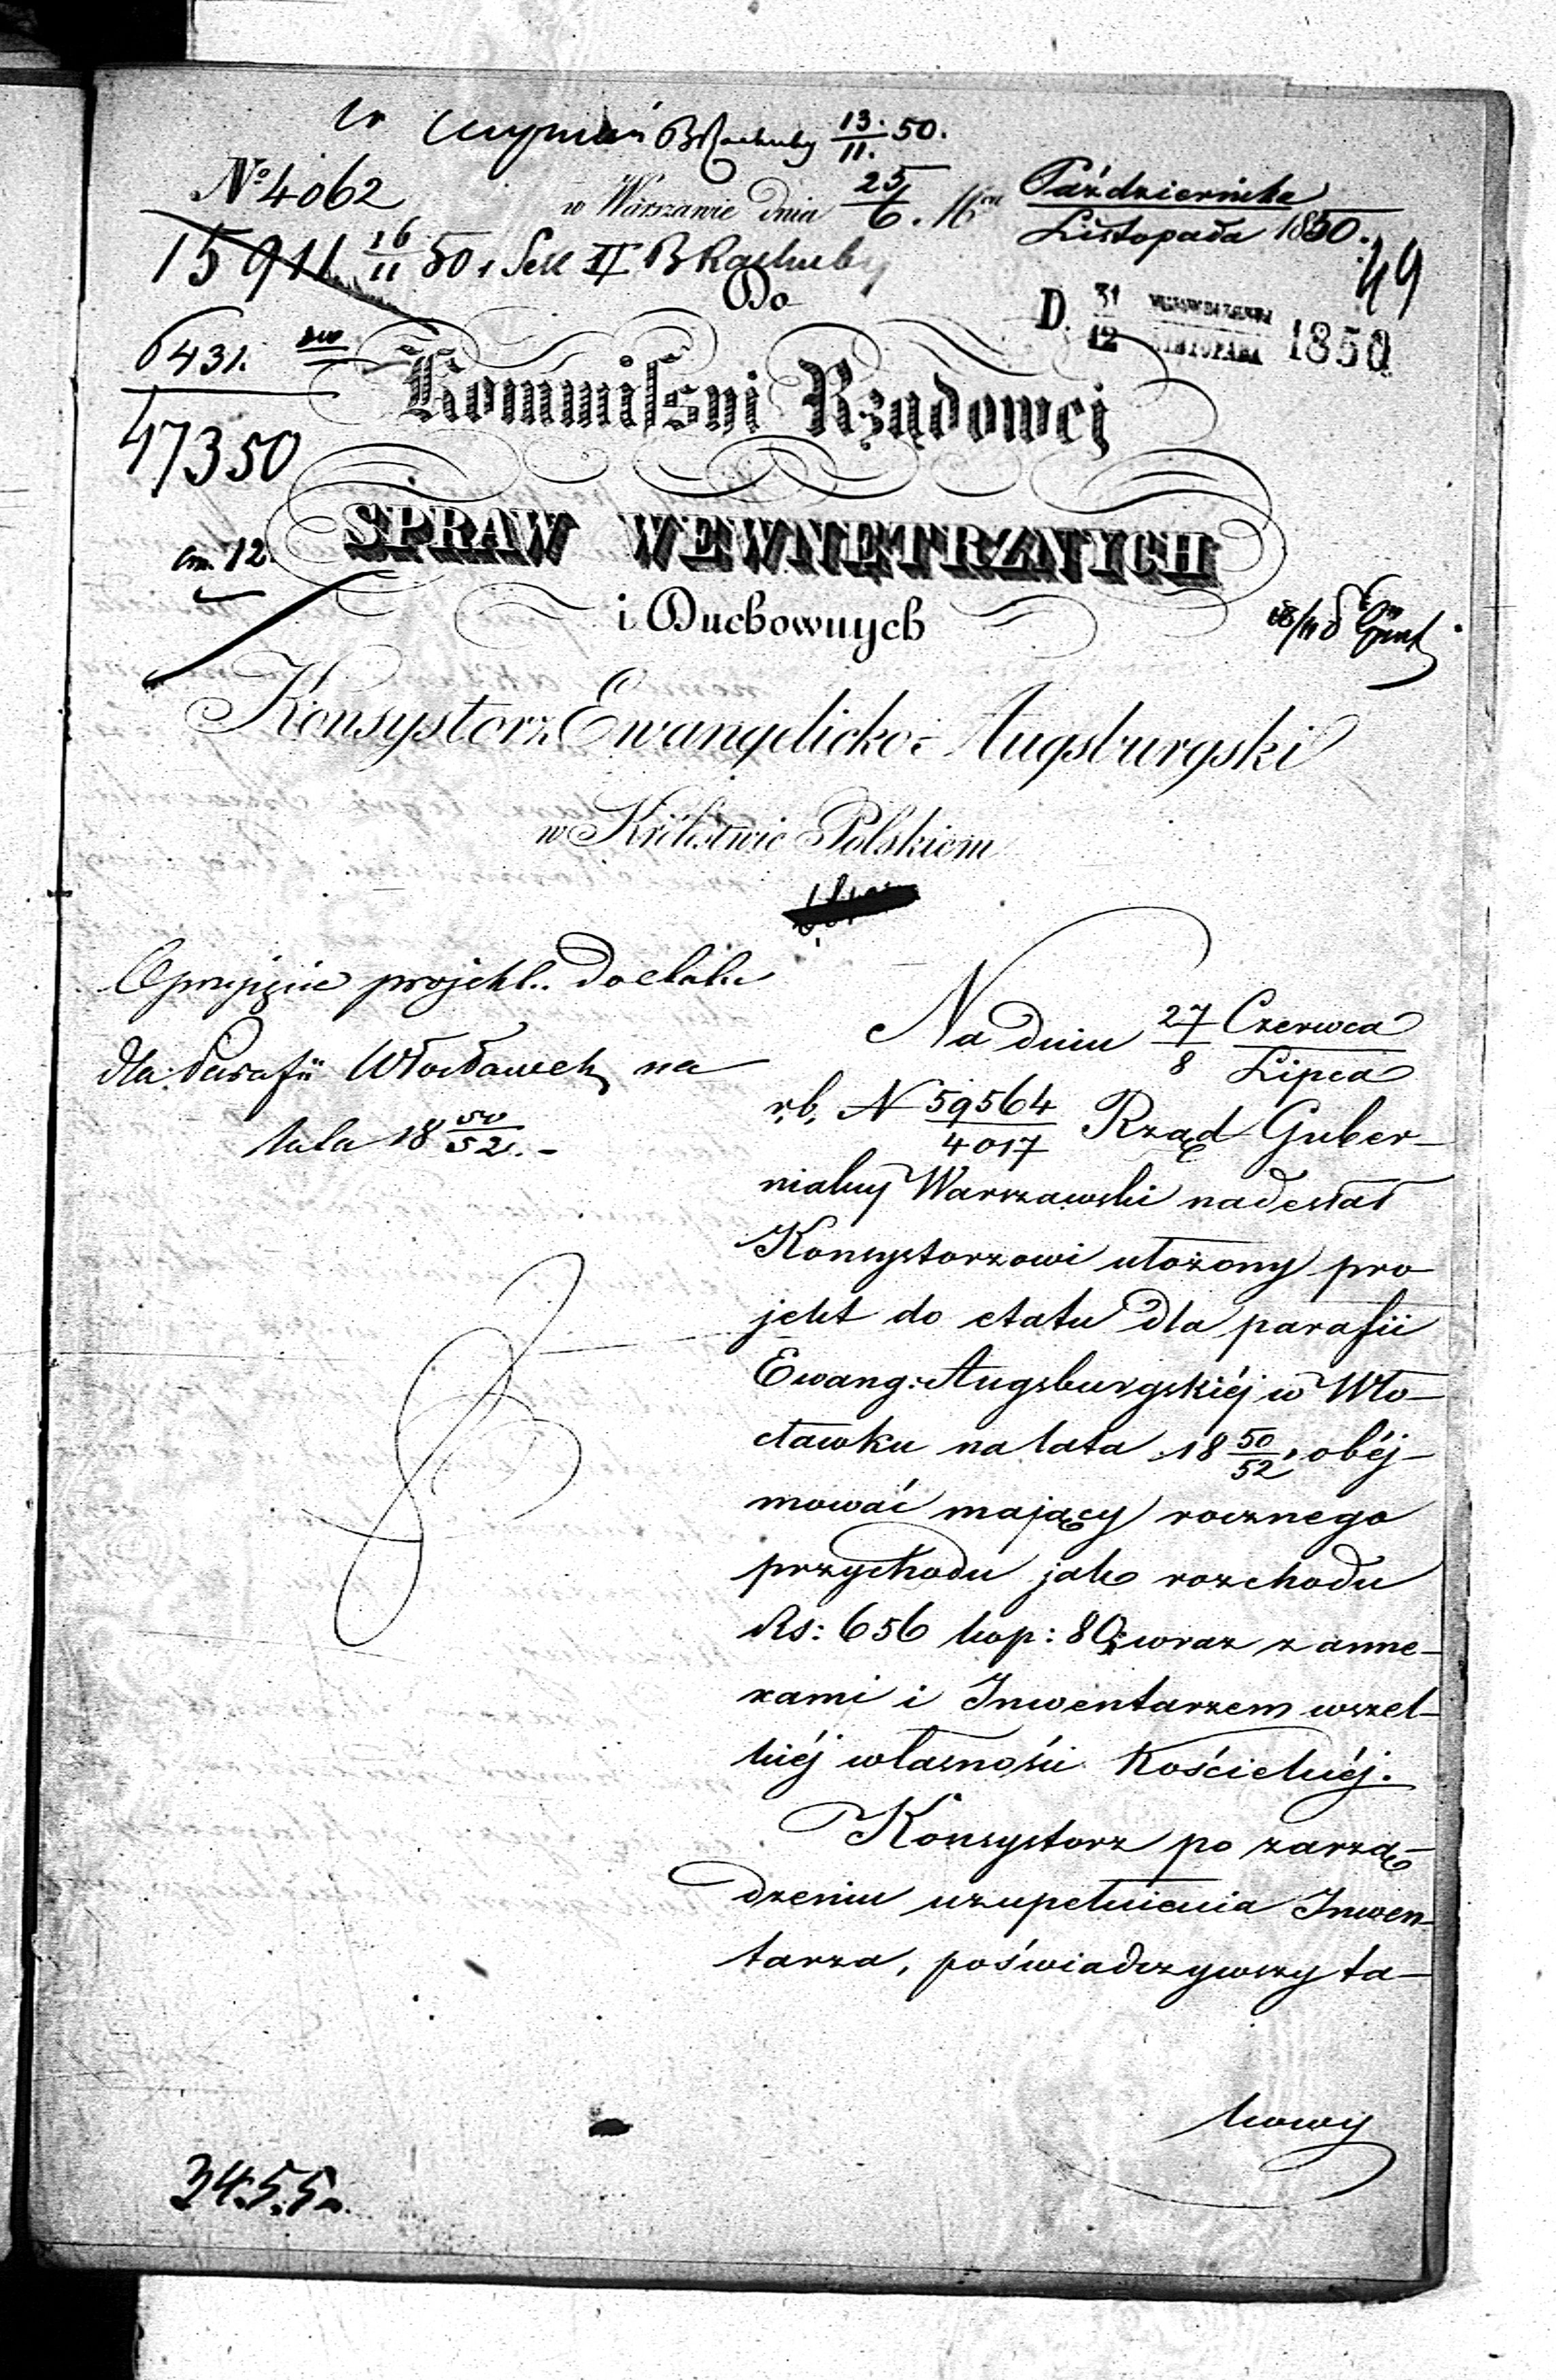 13/11. 50.
№ 4062
w Warszawie dnia 25/6. Października/Listopada 1850.
15911 16/11 50 Sek II B Rachuby
49
Do
D. 31/12 LISTOPADA 1850
6431.
47350
Kommissyi Rządowej
SPRAW WEWNĘTRZNYCH
12.
i Duchownych
Konsystorz Ewangelicko-Augsburgski
w Królestwie Polskiem
projekt. do etatu
dla Parafii Włocławek na
lata 18 50/52. -
Na dniu 27/8 Czerwca/Lipca
r,b, N 59564/4017 Rząd Guber-
nialny Warszawski nadesłał
Konsystorzowi ułożony pro
jekt do etatu dla parafii
Ewang: Augsburgskiéj w Wło-
cławku na lata 18 50/52, obéj-
mować mający rocznego
przychodu jak rozchodu
Rs: 656 kop: 80, wraz z anne-
xami i Inwentarzem wszel-
kiéj własności Kościelnéj.
Konsystorz po zarzą-
dzeniu uzupełnienia Inwen-
tarza, poświadczywszy ta-
kowy
3455